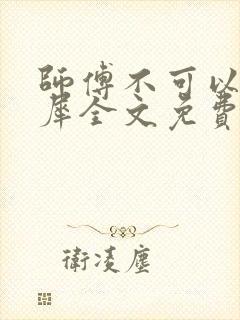 師傅不可以
犀全文免費
衛凌塵